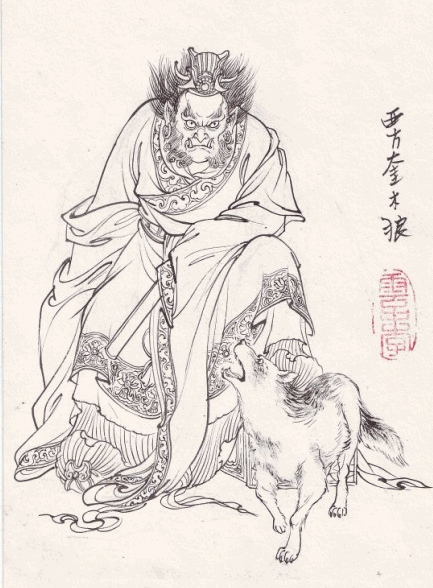 西方奎木狼